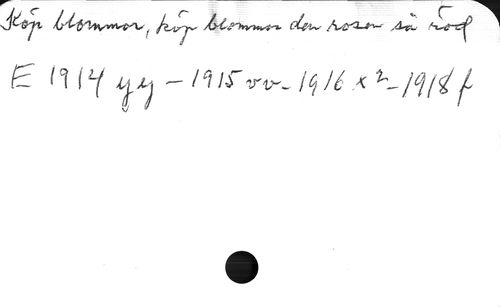 Köp blommor, köp blommor den rosen så röd
E 1914 yy – 1915 vv – 1916 x² – 1918 f